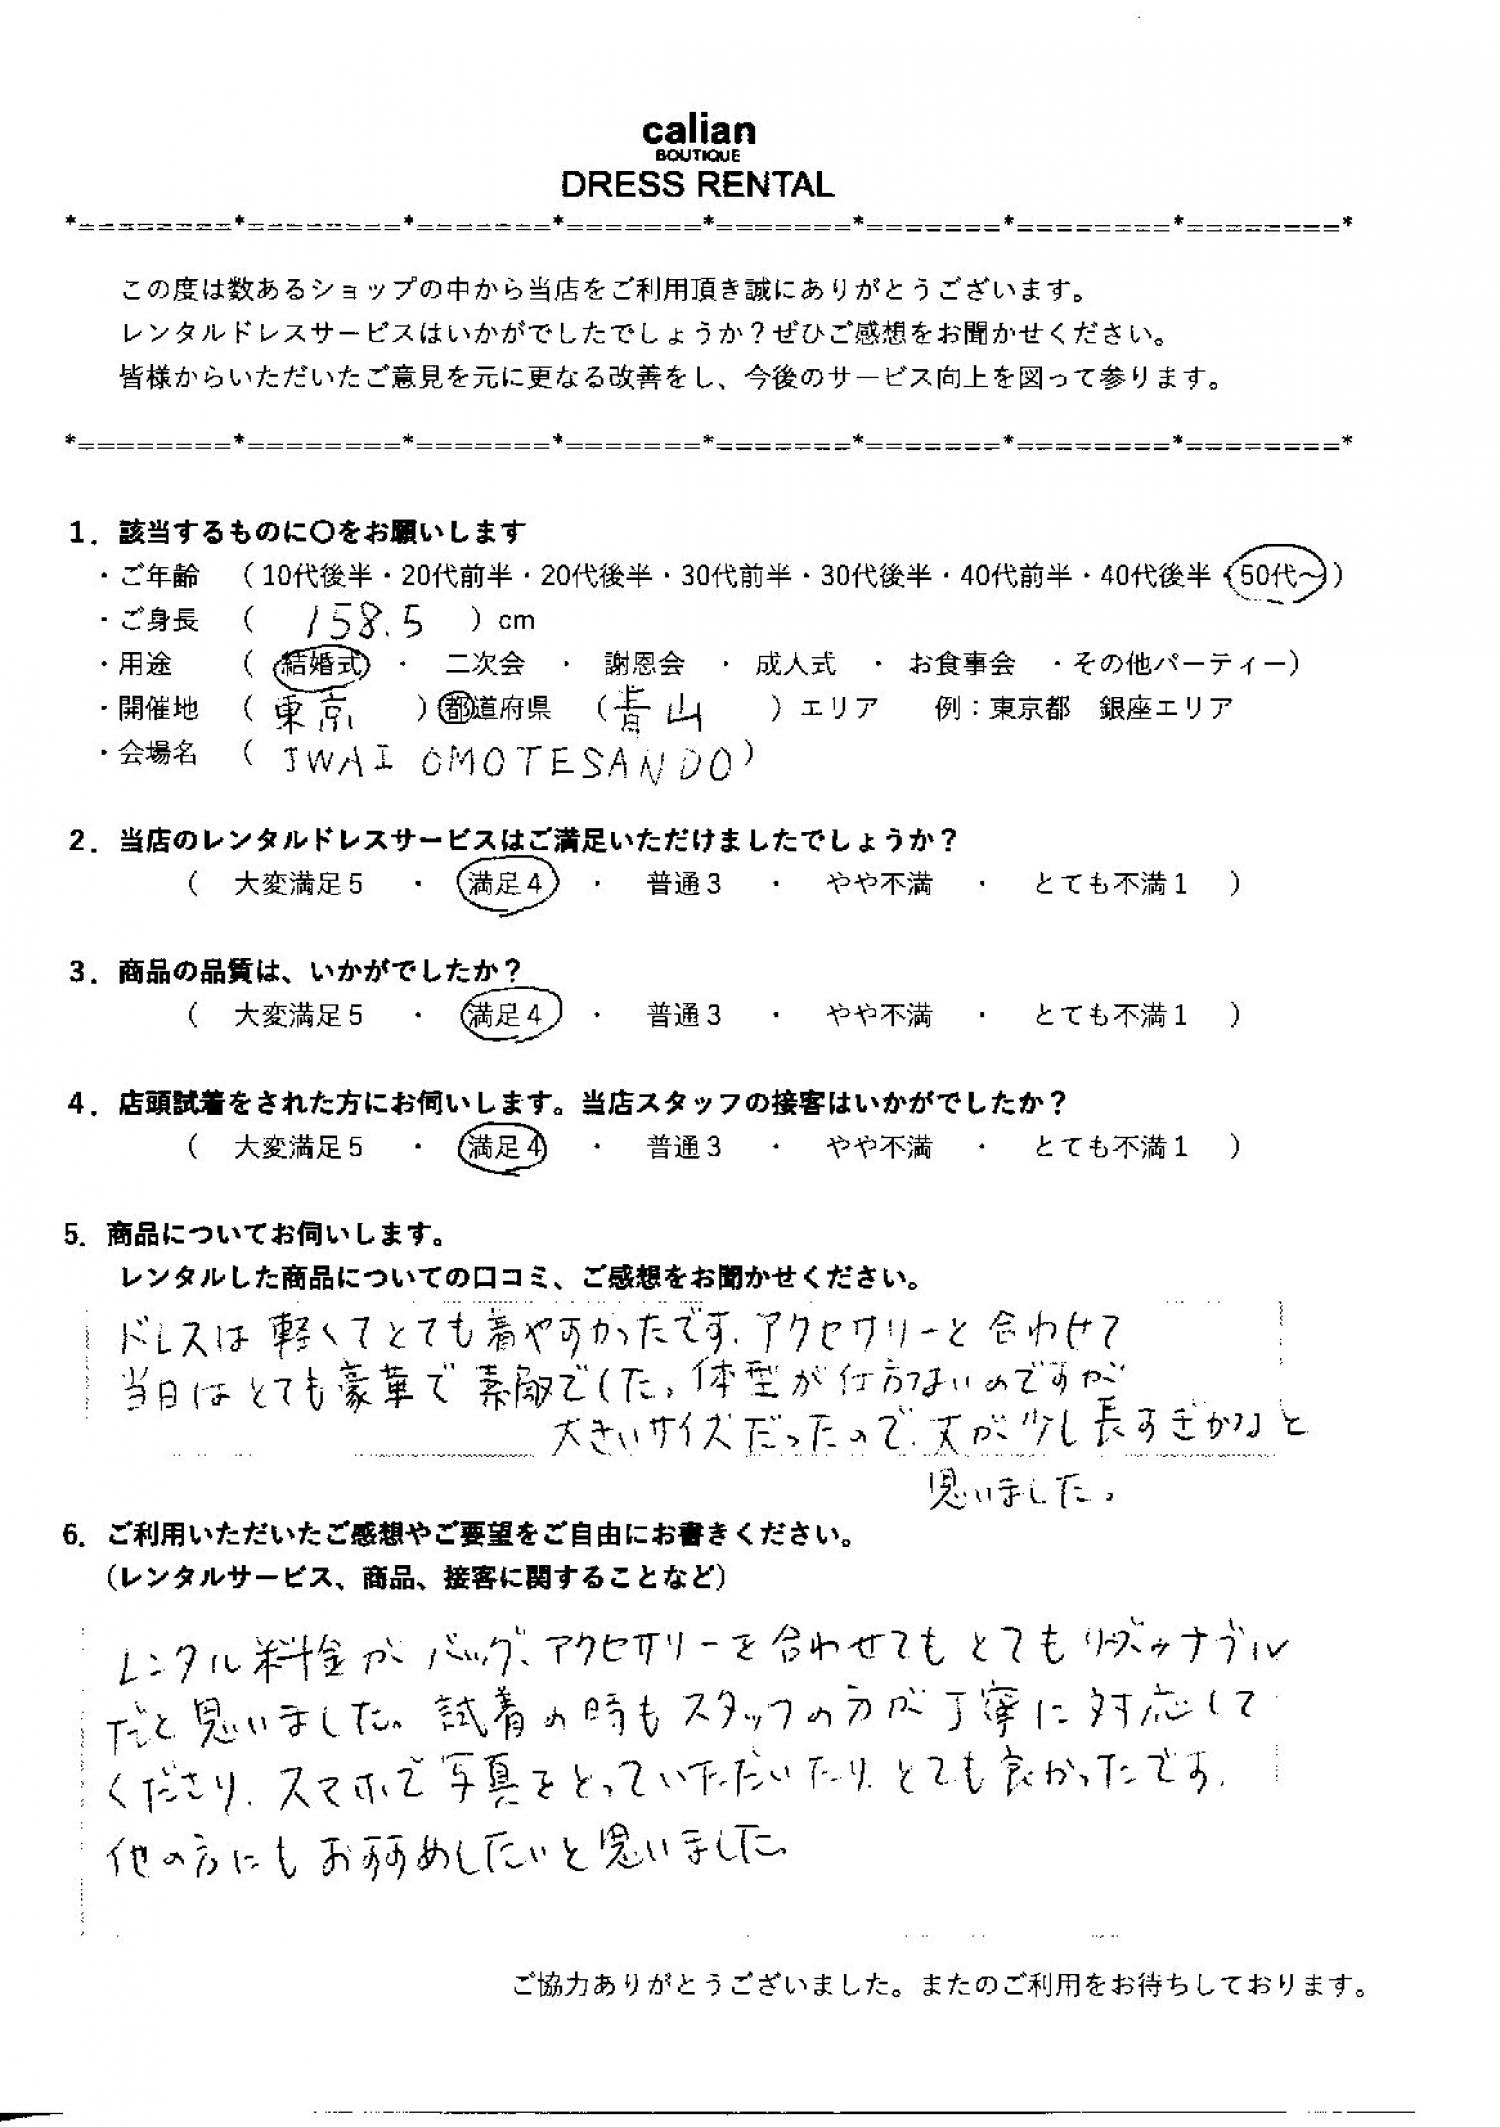 calian
BOUTIQUE
DRESS RENTAL
*========*========*=======*=======*=======*=======*========*========*
この度は数あるショップの中から当店をご利用頂き誠にありがとうございます。
レンタルドレスサービスはいかがでしたでしょうか？ぜひご感想をお聞かせください。
皆様からいただいたご意見を元に更なる改善をし、今後のサービス向上を図って参ります。
*========*========*=======*=======*=======*=======*========*========*
1．該当するものに〇をお願いします
・ご年齢 （10代後半・20代前半・20代後半・30代前半・30代後半・40代前半・40代後半・50代～）
・ご身長 （ 158.5 ）cm
・用途 （ 結婚式 ・ 二次会 ・ 謝恩会 ・ 成人式 ・ お食事会 ・その他パーティー）
・開催地 （ 東京 ）都道府県 （ 青山 ）エリア 例：東京都 銀座エリア
・会場名 （ IWAI OMOTESANDO ）
2．当店のレンタルドレスサービスはご満足いただけましたでしょうか？
（ 大変満足５ ・ 満足４ ・ 普通３ ・ やや不満 ・ とても不満１ ）
3．商品の品質は、いかがでしたか？
（ 大変満足５ ・ 満足４ ・ 普通３ ・ やや不満 ・ とても不満１ ）
4．店頭試着をされた方にお伺いします。当店スタッフの接客はいかがでしたか？
（ 大変満足５ ・ 満足４ ・ 普通３ ・ やや不満 ・ とても不満１ ）
5．商品についてお伺いします。
レンタルした商品についての口コミ、ご感想をお聞かせください。
ドレスは軽くてとても着やすかったです、アクセサリーと合わせて
当日はとても豪華で素敵でした。体型が仕方ないのですが
大きいサイズだったので、丈が少し長すぎかなと
思いました。
6．ご利用いただいたご感想やご要望をご自由にお書きください。
（レンタルサービス、商品、接客に関することなど）
レンタル料金がバッグ、アクセサリーを合わせてもとてもリーズナブル
だと思いました。試着の時もスタッフの方が丁寧に対応して
くださり、スマホで写真をとっていただいたり、とても良かったです、
他の方にもおすすめしたいと思いました。
ご協力ありがとうございました。またのご利用をお待ちしております。